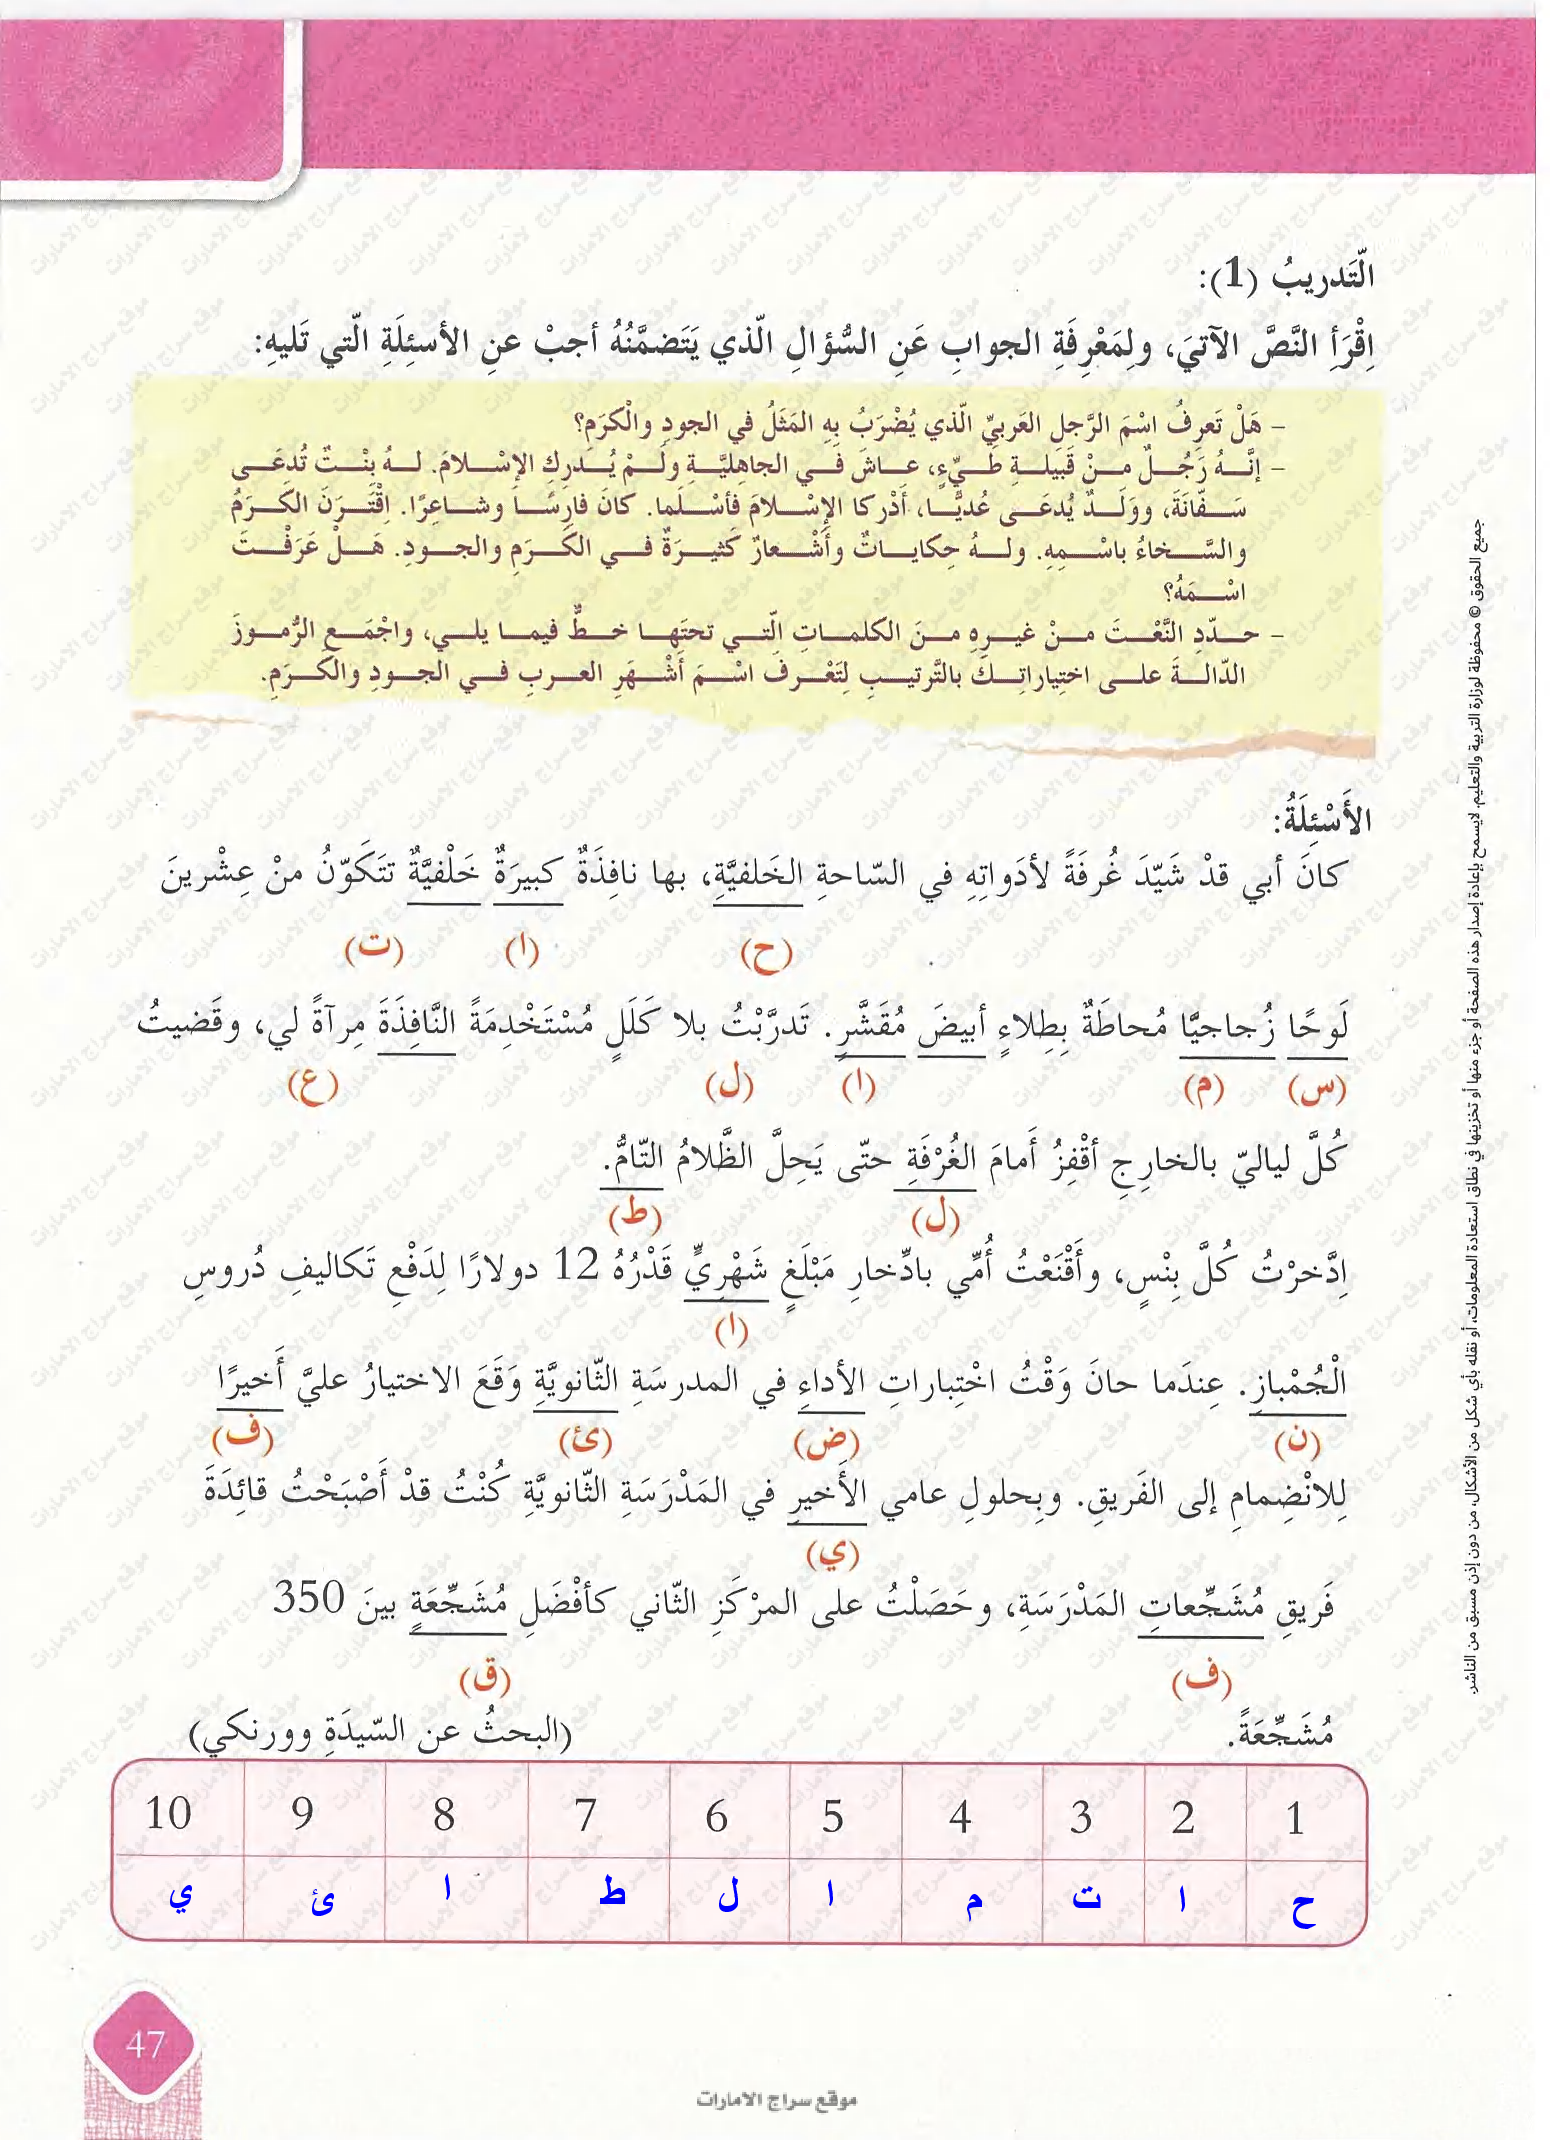 الّتَدريبُ (1):
اِقْرَأِ النَّصَّ الآتيَ، ولِمَعْرِفَةِ الجوابِ عَنِ السُّؤالِ الّذي يَتَضمَّنُهُ أجبْ عنِ الأسئِلَةِ الّتي تَليهِ:
– هَلْ تَعرِفُ اسْمَ الرَّجلِ العَربيِّ الّذي يُضْرَبُ بِهِ المَثَلُ في الجودِ والْكرَمِ؟
– إنَّهُ رَجُلٌ منْ قَبيلةِ طَيِّءٍ، عاشَ في الجاهِليَّةِ ولَمْ يُدرِكِ الإسْلامَ. لهُ بِنْتٌ تُدعَى
سَفّانَةَ، ووَلَدٌ يُدعَى عُديًّا، أدْركا الإسْلامَ فأسْلَما. كانَ فارِسًا وشاعِرًا. اِقْتَرَنَ الكَرَمُ
والسَّخاءُ باسْمِهِ. ولهُ حِكاياتٌ وأشْعارٌ كَثيرَةٌ في الكَرَمِ والجودِ. هَلْ عَرَفْتَ
اسْمَهُ؟
– حدّدِ النَّعْتَ منْ غيرِهِ منَ الكلماتِ الّتي تحتَها خطٌّ فيما يلي، واجْمَعِ الرُّموزَ
الدّالةَ على اختِياراتِكَ بالتَّرتيبِ لِتَعْرفَ اسْمَ أشْهَرِ العربِ في الجودِ والكَرَمِ.
الأَسْئِلَةُ:
كانَ أبي قدْ شَيّدَ غُرفَةً لأدَواتِهِ في السّاحةِ الخَلفيَّةِ، بها نافِذَةٌ كبيرَةٌ خَلْفيَّةٌ تتَكَوّنُ منْ عِشْرينَ
(ح) (ا) (ت)
لَوحًا زُجاجيًّا مُحاطَةٌ بِطِلاءٍ أبيضَ مُقَشَّرٍ. تَدرَّبْتُ بلا كَلَلٍ مُسْتَخْدِمَةً النَّافِذَةَ مِرآةً لي، وقَضيتُ
(س) (م) (ا) (ل) (ع)
كُلَّ لياليّ بالخارِجِ أقْفِزُ أَمامَ الغُرْفَةِ حتّى يَحِلَّ الظَّلامُ التّامُّ.
(ل) (ط)
اِدَّخرْتُ كُلَّ بِنْسٍ، وأَقْنَعْتُ أُمِّي بادِّخارِ مَبْلَغٍ شَهْرِيٍّ قَدْرُهُ 12 دولارًا لِدَفْعِ تَكاليفِ دُروسِ
(ا)
الْجُمْبازِ. عِندَما حانَ وَقْتُ اخْتِباراتِ الأداءِ في المدرسَةِ الثّانويَّةِ وَقَعَ الاختيارُ عليَّ أَخيرًا
(ن) (ض) (ئ) (ف)
لِلانْضِمامِ إلى الفَريقِ. وبِحلولِ عامي الأَخيرِ في المَدْرَسَةِ الثّانويَّةِ كُنْتُ قدْ أَصْبَحْتُ قائِدَةَ
(ي)
فَريقِ مُشَجِّعاتِ المَدْرَسَةِ، وحَصَلْتُ على المرْكَزِ الثّاني كأفْضَلِ مُشَجِّعَةٍ بينَ 350
(ف) (ق)
مُشَجِّعَةً. (البحثُ عن السّيدَةِ وورنكي)
1 2 3 4 5 6 7 8 9 10
ح ا ت م ا ل ط ا ئ ي
جميع الحقوق © محفوظة لوزارة التربية والتعليم. لايسمح بإعادة إصدار هذه الصفحة أو جزء منها أو تخزينها في نطاق استعادة المعلومات، أو نقله بأي شكل من الأشكال، من دون إذن مسبق من الناشر.
47
موقع سراج الامارات